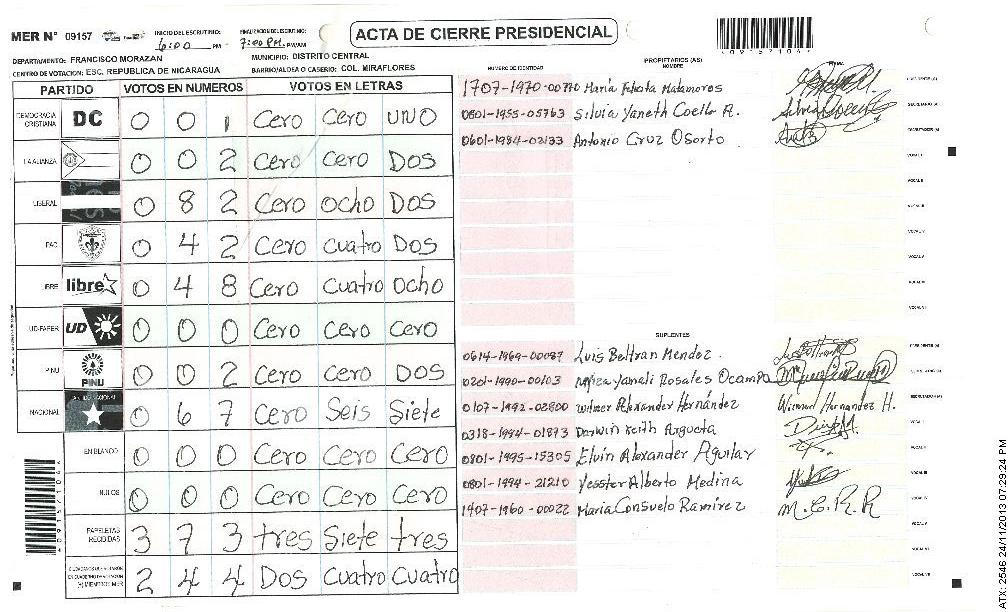 MER N° 09157
INICIO DEL ESCRUTINIO: 6:00 PM
FINALIZACION DEL ESCRUTINIO: 7:00 PM. PM/AM
ACTA DE CIERRE PRESIDENCIAL
09157104
DEPARTAMENTO: FRANCISCO MORAZAN
MUNICIPIO: DISTRITO CENTRAL
CENTRO DE VOTACION: ESC. REPUBLICA DE NICARAGUA
BARRIO/ALDEA O CASERIO: COL. MIRAFLORES
PARTIDO VOTOS EN NUMEROS VOTOS EN LETRAS
DEMOCRACIA CRISTIANA DC 0 0 1 Cero Cero UNO
LA ALIANZA 0 0 2 Cero Cero DOS
LIBERAL 0 8 2 Cero Ocho DOS
PAC 0 4 2 Cero Cuatro DOS
LIBRE libre 0 4 8 Cero Cuatro Ocho
UD-FAPER UD 0 0 0 Cero Cero Cero
PINU PINU 0 0 2 Cero Cero DOS
NACIONAL 0 6 7 Cero Seis Siete
EN BLANCO 0 0 0 Cero Cero Cero
NULOS 0 0 0 Cero Cero Cero
PAPELETAS RECIBIDAS 3 7 3 tres Siete tres
2 4 4 DOS Cuatro Cuatro
NUMERO DE IDENTIDAD
PROPIETARIOS (AS)
NOMBRE
FIRMA
1707-1970-00770 María Matamoros
0801-1955-05763 Silvia Yaneth Coello A.
0601-1984-02133 Antonio Cruz Osorto
SUPLENTES
0614-1969-00087 Luis Beltran Mendez
0201-1990-00103 Yanali Rosales Ocampo
0107-1992-02800 Wilmer Alexander Hernández Wilmer Hernandez H.
0318-1994-01873 Darwin Keith Argueta
0801-1995-15305 Elvin Alexander Aguilar
0801-1994-21210 Yesster Alberto Medina
1707-1960-00022 María Consuelo Ramirez M.C.R.R
ATX: 2546 24/11/2013 07:29:24 PM